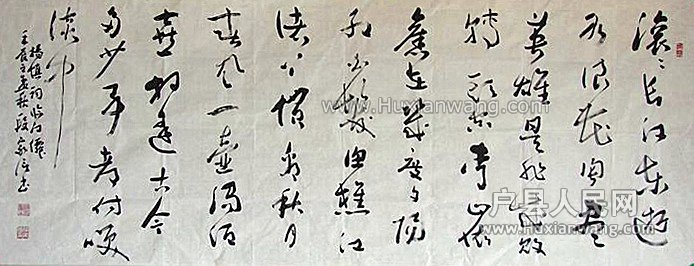 滚滚长江东逝
水浪花淘尽
英雄是非成败
转头空青山依
旧在几度夕阳
红白发渔樵江
渚上惯看秋月
春风一壶浊酒
喜相逢古今
多少事都付笑
谈中
杨慎词临江仙
孟秋段家书
户县人民网
www.Huxianwang.com
户县人民网
www.Huxianwang.com